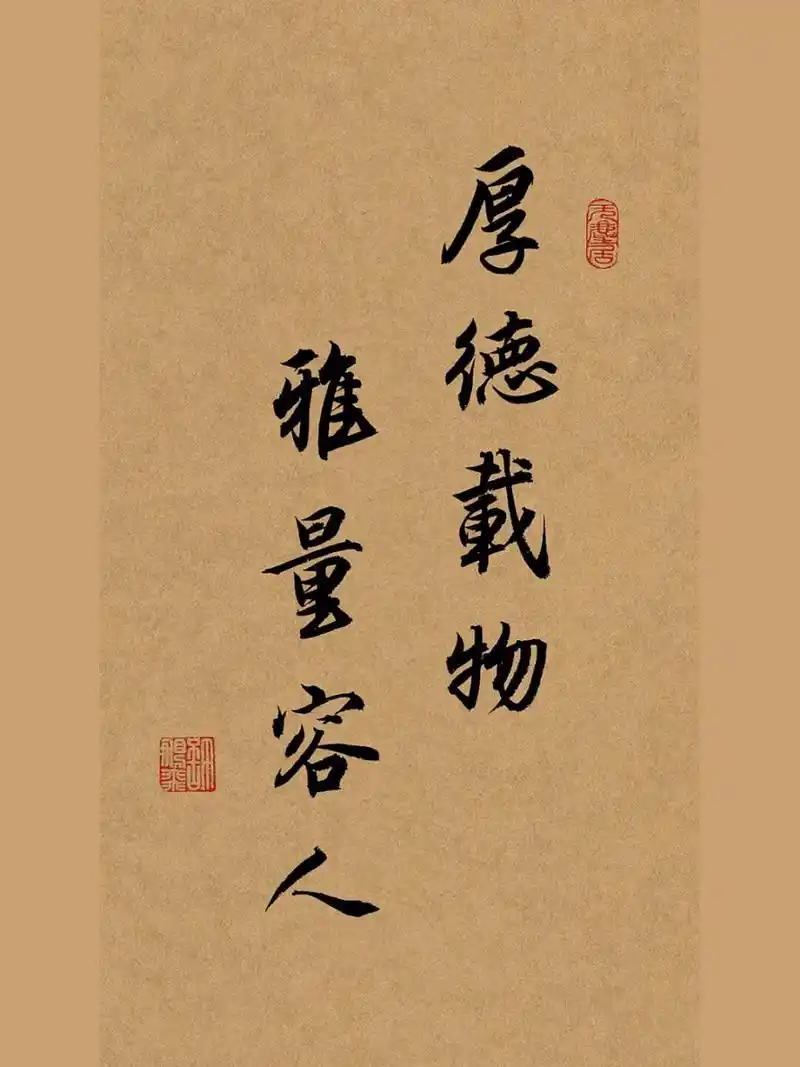 厚德載物
雅量容人